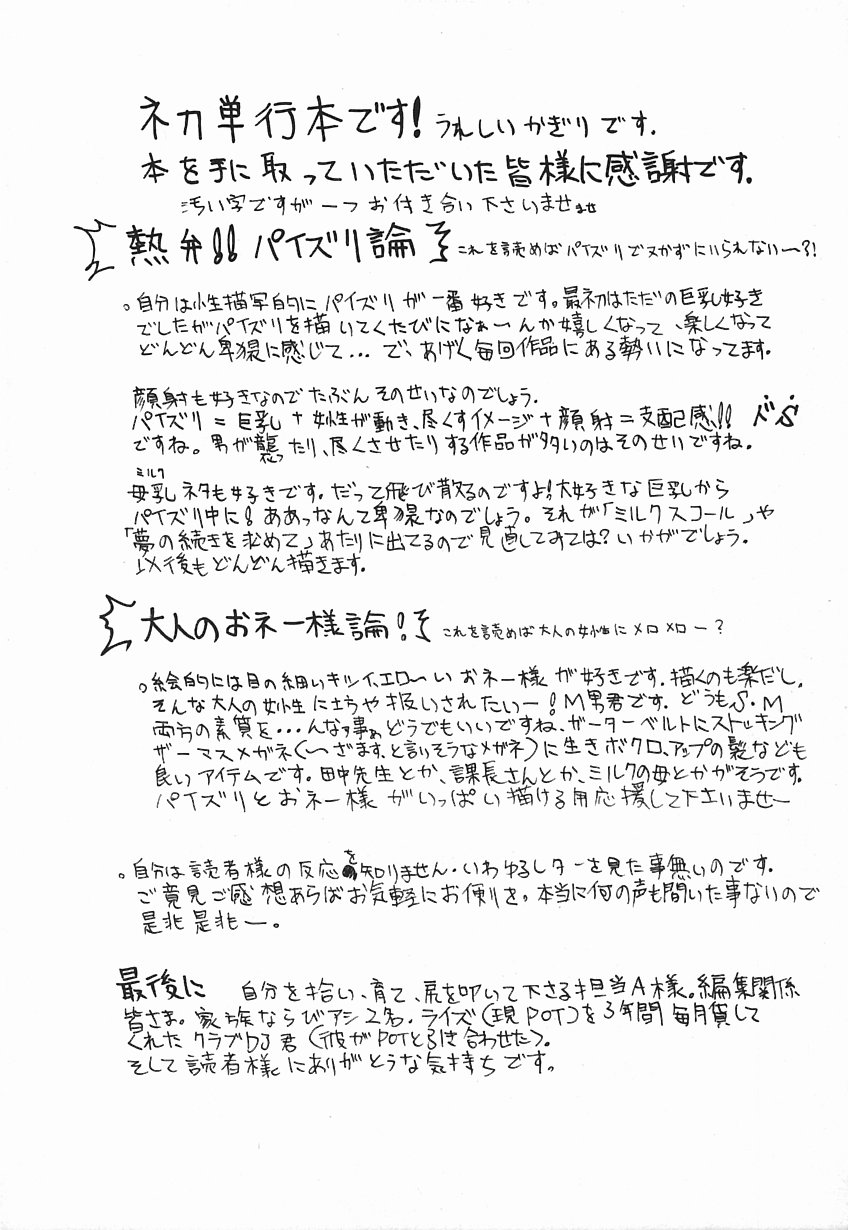 ネカ単行本です! うれしいかぎりです.
本を手に取っていただいた皆様に感謝です.
汚い字ですが一つお付き合い下さいませませ
熱弁!! パイズリ論 これを読めばパイズリでヌかずにいられないー?!
。自分は性描写的にパイズリが一番好きです。最初はただの巨乳好き
でしたがパイズリを描いてくたびになぁーんか嬉しくなって、楽しくなって
どんどん卑猥に感じて... で、あげく毎回作品にある勢いになってます.
顔射も好きなのでたぶんそのせいなのでしょう.
パイズリ=巨乳+女性が動き、尽くすイメージ+顔射=支配感!! ドS
ですね。男が襲ったり、尽くさせたりする作品が多いのはそのせいですね.
ミルク
母乳ネタも好きです。だって飛び散るのですよ!大好きな巨乳から
パイズリ中に!ああっなんて卑猥なのでしょう。それが「ミルクスコール」や
「夢の続きを求めて」あたりに出てるので見直してみては?いかがでしょう.
以後もどんどん描きます.
大人のおネー様論! これを読めば大人の女性にメロメロー?
。絵的には目の細いキツイ、エロ〜いおネー様が好きです.描くのも楽だし.
そんな大人の女性に土ちや扱いされたいー!M男君です.どうもS・M
両方の素質を...んな事ぁどうでもいいですね、ガーターベルトにストッキング
ザーマスメガネ(〜ざます、と言いそうなメガネ)に生きボクロ、アップの髪なども
良いアイテムです.田中先生とか、課長さんとか、ミルクの母とかがそうです.
パイズリとおネー様がいっぱい描ける用応援して下さいませー
。自分は読者様の反応を知りません.いわゆるレターを見た事無いのです.
ご意見ご感想あらばお気軽にお便りを。本当に何の声も聞いた事ないので
是非是非ー。
最後に 自分を拾い、育て、尻を叩いて下さる担当A様。編集関係
皆さま。家族ならびアシ2名.ライズ(現POT)を3年間毎月貸して
くれたクラブDJ君(彼がPOTと引き合わせた).
そして読者様にありがとうな気持ちです。